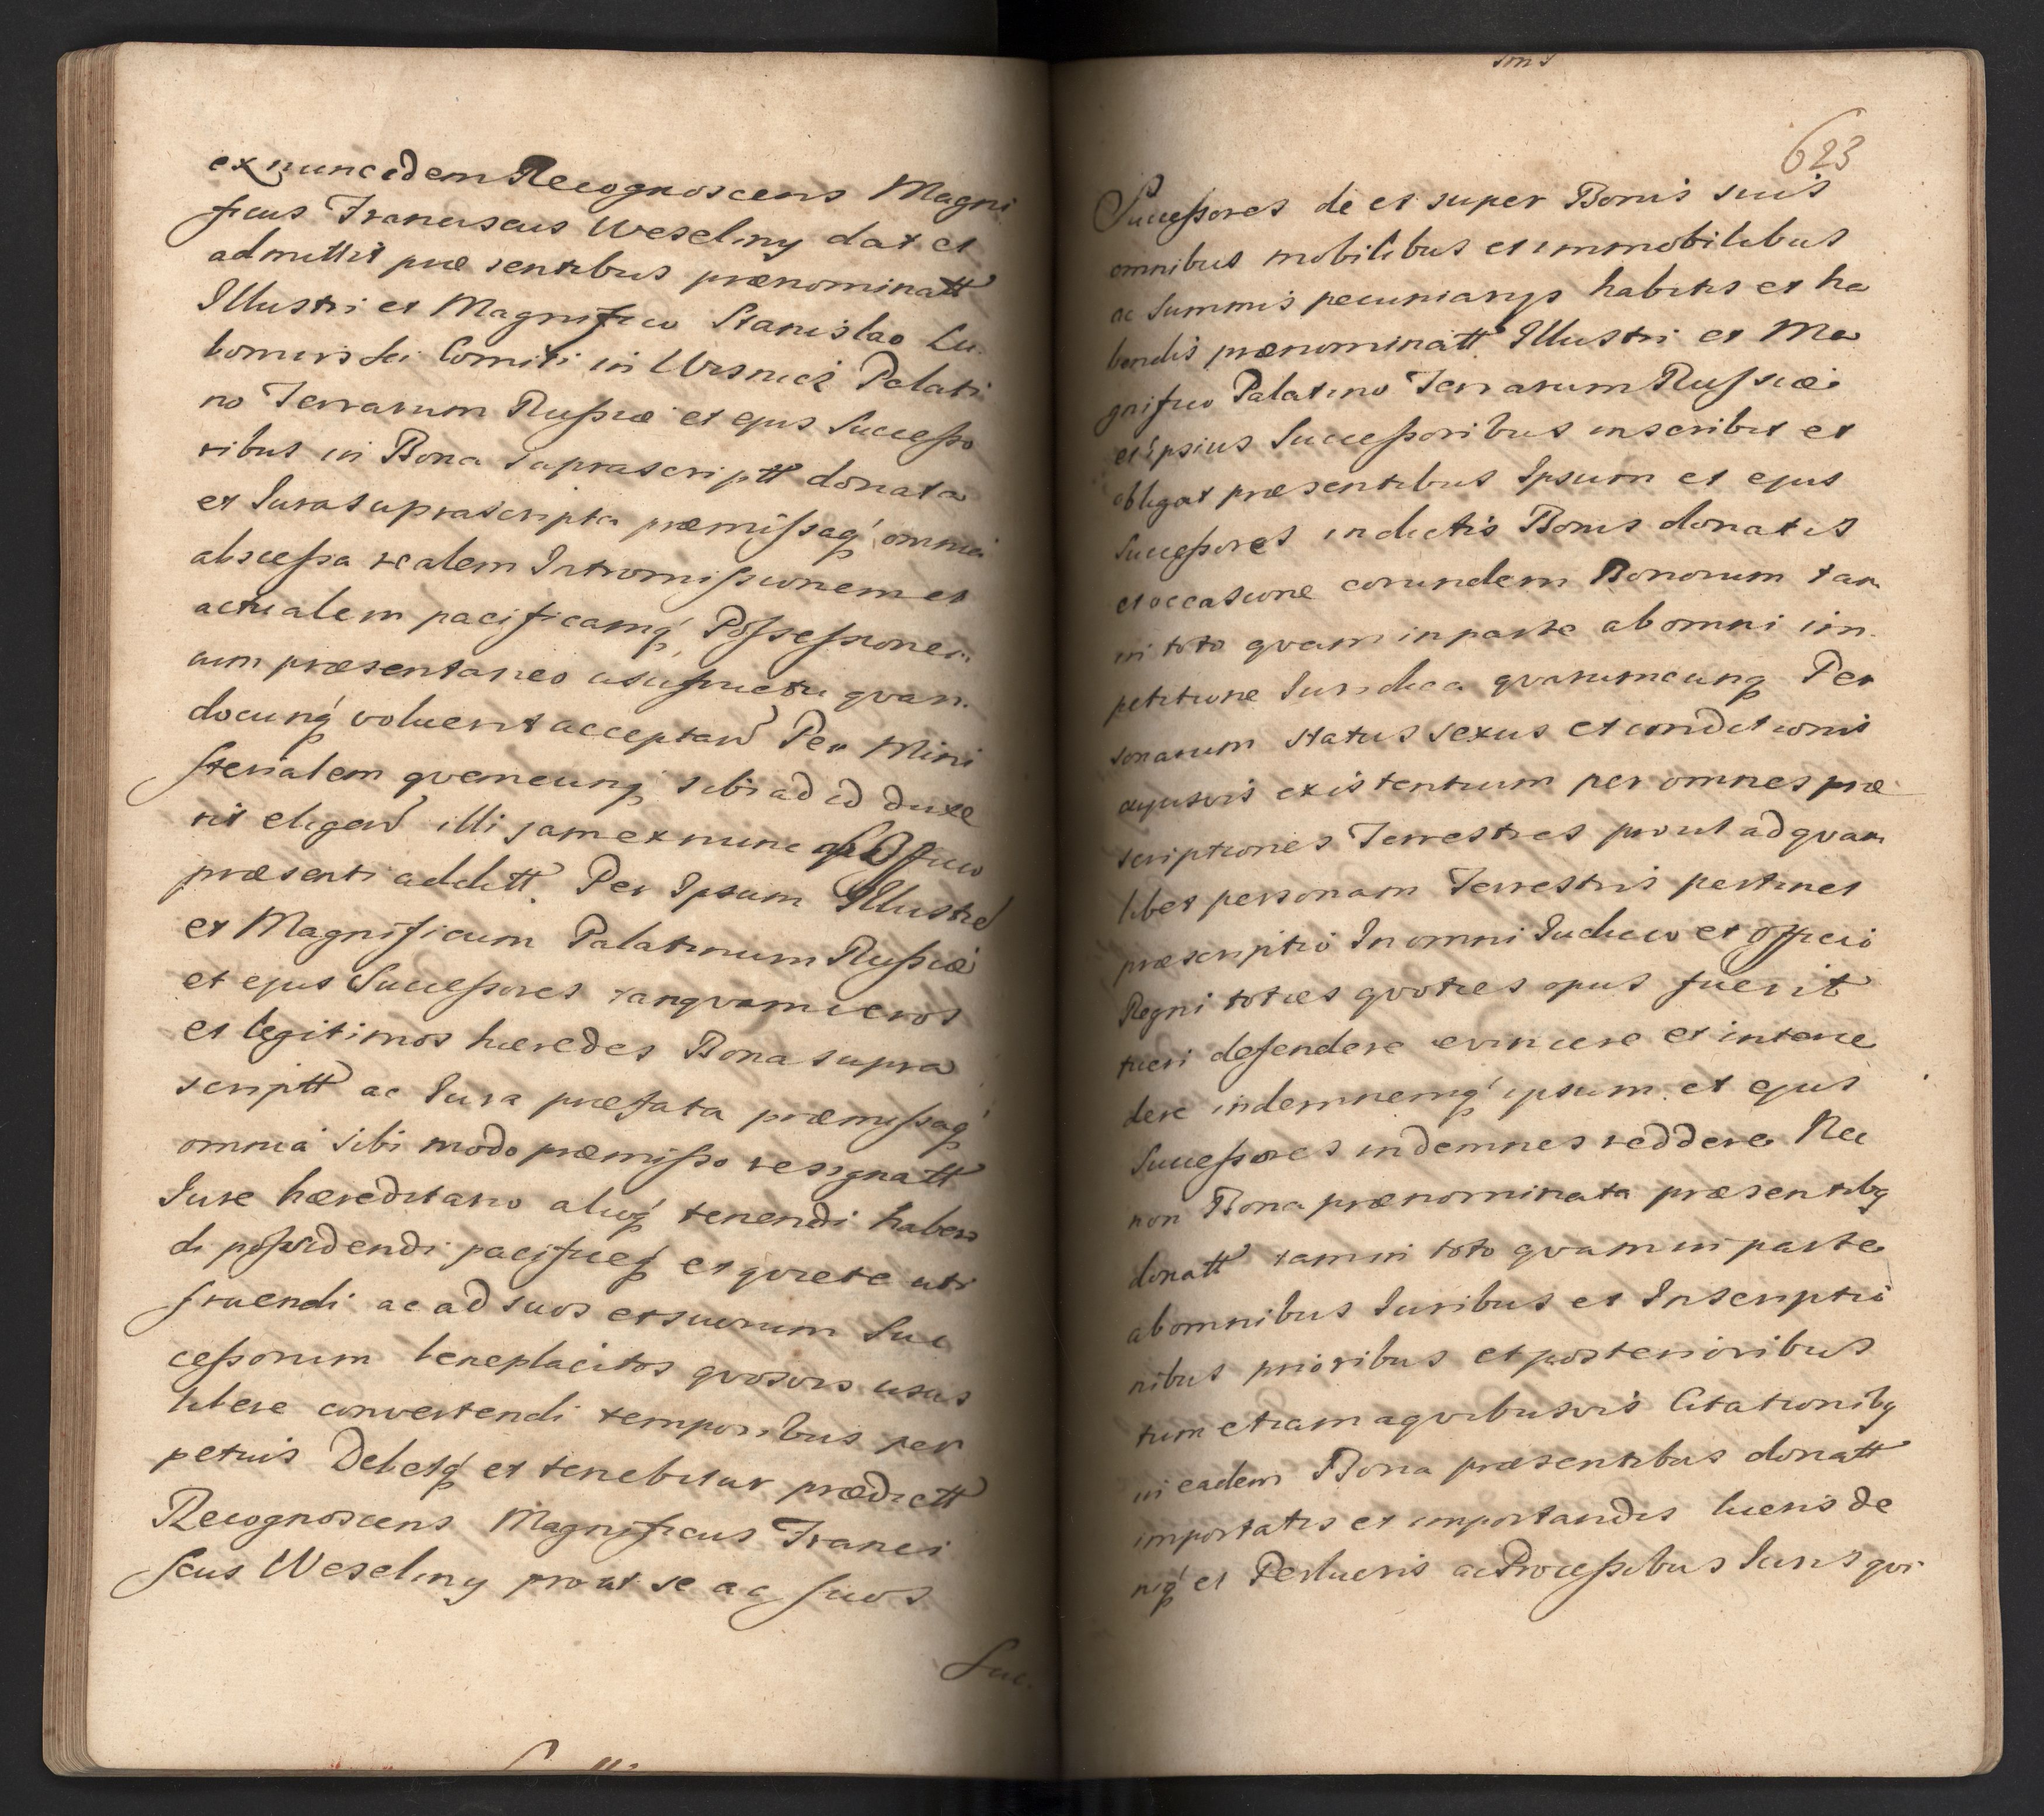 ex nunc idem Recognoscens Magni
ficus Franciscus Weseliny dat et
admittit præsentibus prænominatt
Illustri et Magnifico Stanislao Lu
bomirski Comiti in Wisnicz Palati
no Terrarum Russiæ et ejus Successo
ribus in Bona suprascriptt donata
et Jura suprascripta præmissaq omnia
abscessa realem Intromissionem et
actualem pacificamq Possessionem
cum præsentaneo usufructu quan
docunq voluerit acceptand Per Mini
sterialem quemcunq sibi ad id duxe
rit eligend illi jam ex nunc ab Officio
præsenti additt. Per Ipsum Illustrem
et Magnificum Palatinum Russiæ
et ejus Successores tanquam veros
et legitimos hæredes Bona supra
scriptt ac Jura præfata præmissaq
omnia sibi modo præmisso resignatt
Jure hæreditario alioq tenendi haben
di possidendi pacificeq et quiete uti
fruendi ac ad suos et suorum Suc
cessorum beneplacitos quosvis usus
libere convertendi temporibus per
petuis Debetq et tenebitur prædictt
Recognoscens Magnificus Franci
scus Weseliny prout se ac suos
Suc.
623
Successores de et super Bonis suis
omnibus mobilibus et immobilibus
ac summis pecuniarys habitis et ha
bendis prænominatt Illustri et Ma
gnifico Palatino Terrarum Russiæ
et ipsius Successoribus inscribit et
obligat præsentibus Ipsum et ejus
Successores in dictis Bonis donatis
et occasione eorundem Bonorum tam
in toto quam in parte ab omni im
petitione Juridica quarumcunq Per
sonarum status sexus et conditionis
cujusvis existentium per omnes præ
scriptiones Terrestres prout ad quam
libet personam Terrestris pertinet
præscriptio In omni Judicio et Officio
Regni toties quoties opus fuerit
tueri defendere evincere et interce
dere indemnemq ipsum et ejus
Successores indemnes reddere Nec
non Bona prænominata præsentibq
donatt tam in toto quam in parte
ab omnibus Juribus et Inscriptio
nibus prioribus et posterioribus
tum etiam a quibusvis Citationibq
in eadem Bona præsentibus donatt
importatis et importandis lucris de
niq et Perlucris ac Processibus Juris qui